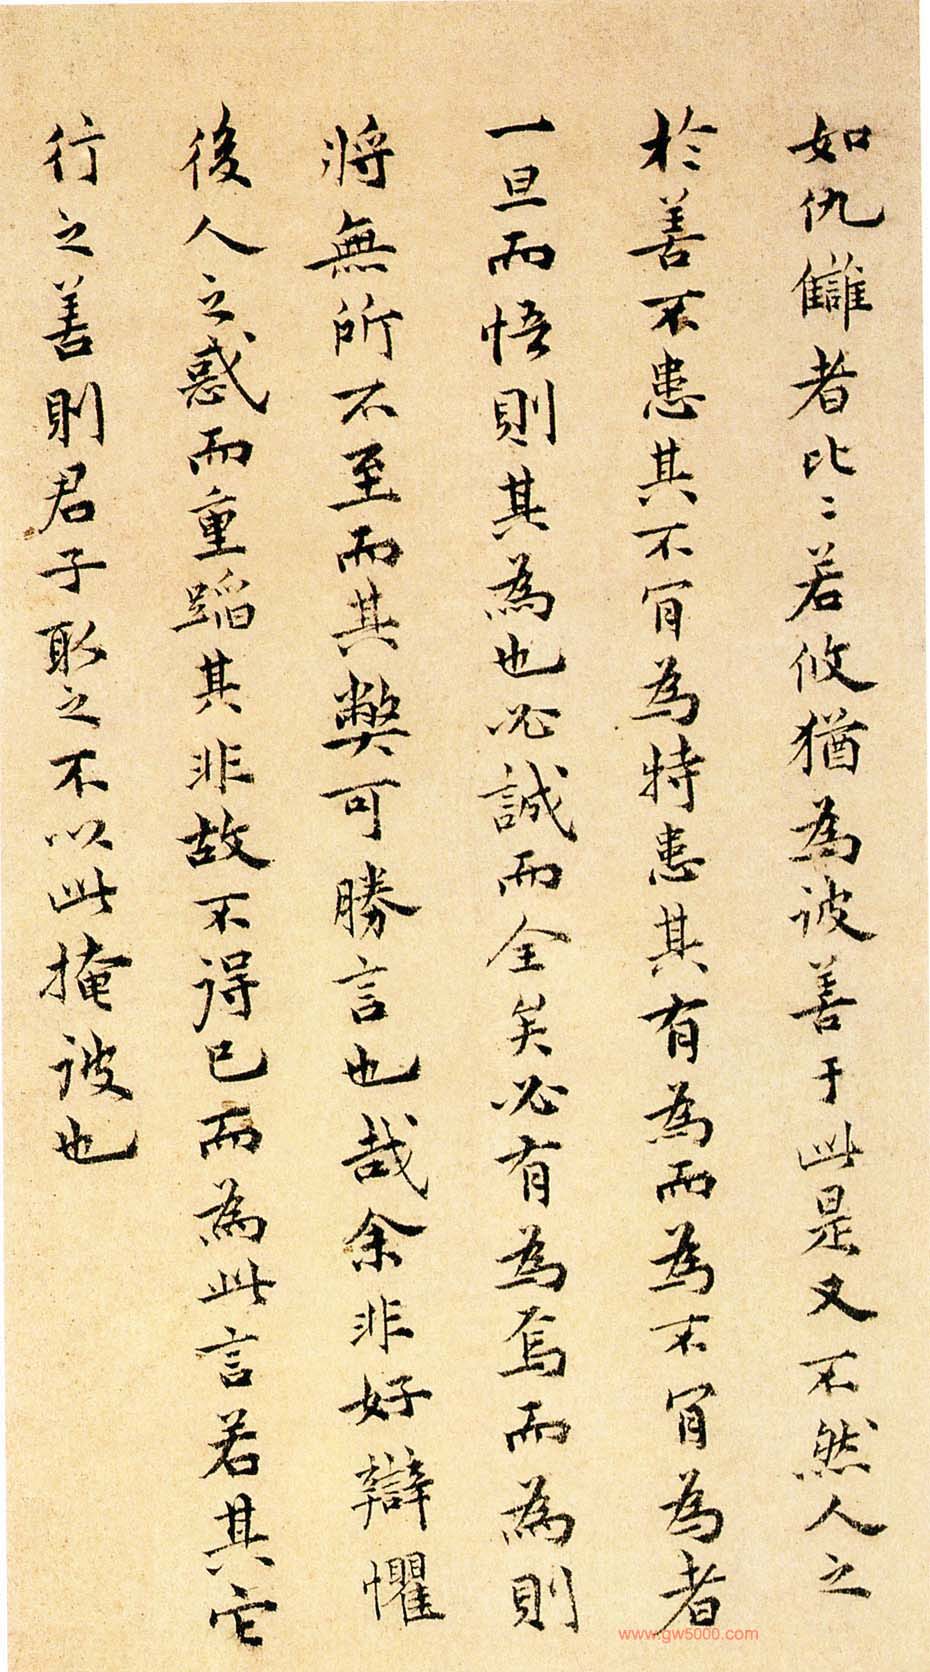 如仇讎者比〻若攸猶為詖善于此是又不然人之
於善不患其不肎為特患其有為而為不肎為者
一旦而悟則其為也必誠而全矣必有為焉而為則
將無所不至而其獘可勝言也哉余非好辯懼
後人之惑而重蹈其非故不得已而為此言若其它
行之善則君子取之不以此掩詖也
www.gw5000.com